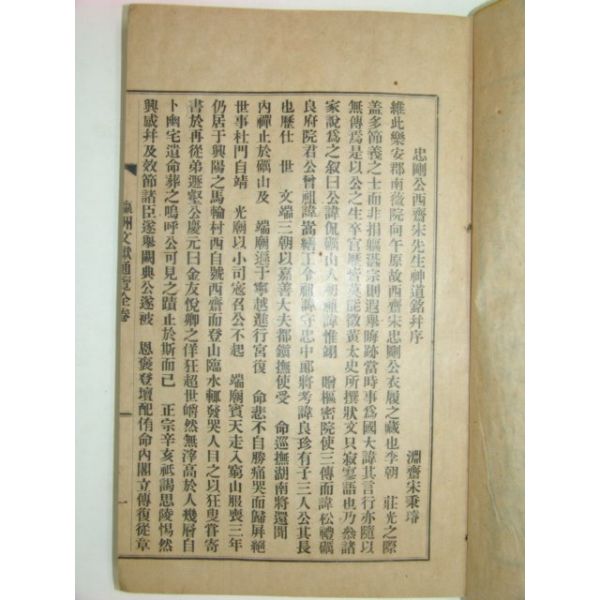 忠剛公西齋宋先生神道銘幷序
淵齋宋秉璿
維此樂安郡南薇院向午原故西齋宋忠剛公衣履之藏也李朝 莊光之際
盖多節義之士而非捐軀湛宗則遐舉晦跡當時事爲國大諱其言行亦隨以
無傳焉是以公之生卒官歷齊莫能徵黃太史所撰狀文只寂寥語也乃叅諸
家說爲之叙曰公諱侃礪山人初諱惟翊 贈樞密院使三傳而諱松禮礪
良府院君公曾祖諱 繕工令祖諱守忠中郎將考諱良珍有子三人公其長
也歷仕 世 文端三朝以嘉善大夫都鎭撫使受 命巡撫湖南將還聞
內禪止於礪山及 端廟遜于寧越進行宮復 命悲不自勝痛哭而歸屛絕
世事杜門自靖 光廟以小司寇召公不起 端廟賓天走入窮山服喪三年
仍居于興陽之馬輪村西自號西齋而登山臨水輒發哭人目之以狂叟嘗寄
書於再從弟遯壑公慶元曰金友悅卿之佯狂超世嶒然無滓高於人幾層自
卜幽宅遺命葬之嗚呼公可見之蹟止於斯而已 正宗辛亥祇謁思陵惕然
興感幷及效節諸臣遂舉闕典公遂被 恩褒登壇配侑命內閣立傳復徒章
瀛州文獻通覽全卷
一